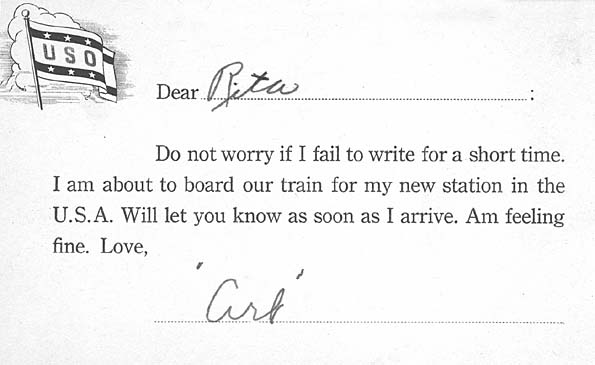 USO
Dear Rita :
Do not worry if I fail to write for a short time.
I am about to board our train for my new station in the
U.S.A. Will let you know as soon as I arrive. Am feeling
fine. Love,
"Art"